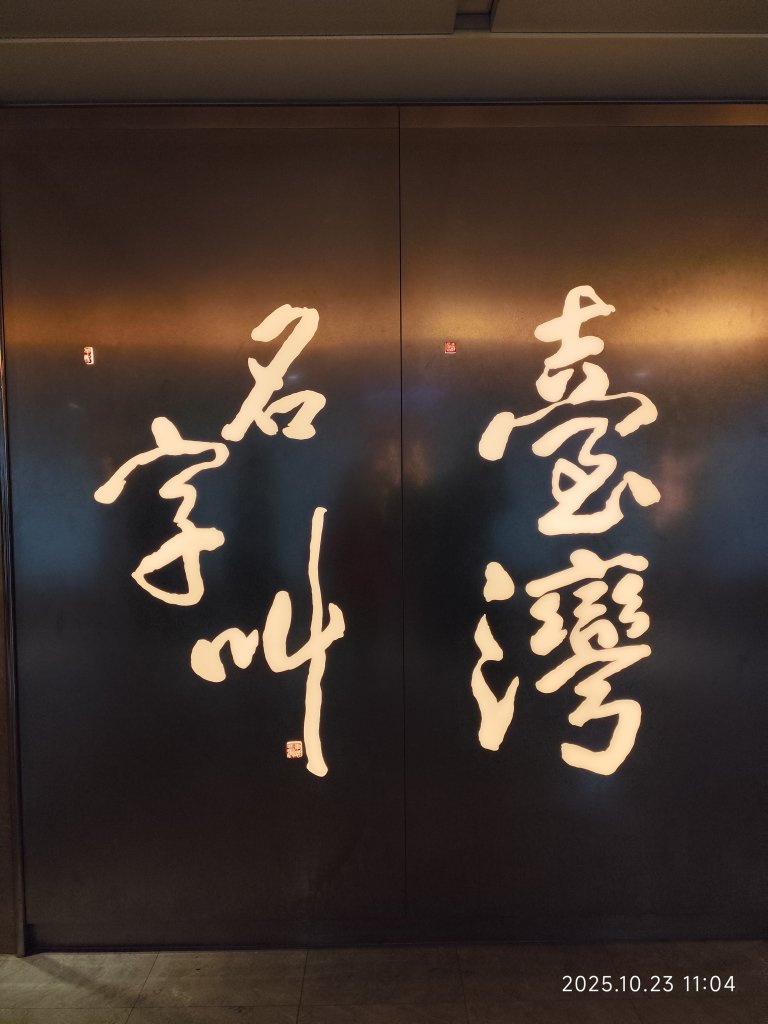 臺灣
名字叫
2025.10.23 11:04